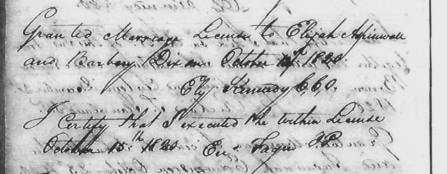 Granted Marriage License to Elijah Aspinwall
and Barbary Dixon October 14th 1820
Ely Kennedy C.C.O.
I Certify that I executed the within License
October 15th 1820 Fagin J.P.